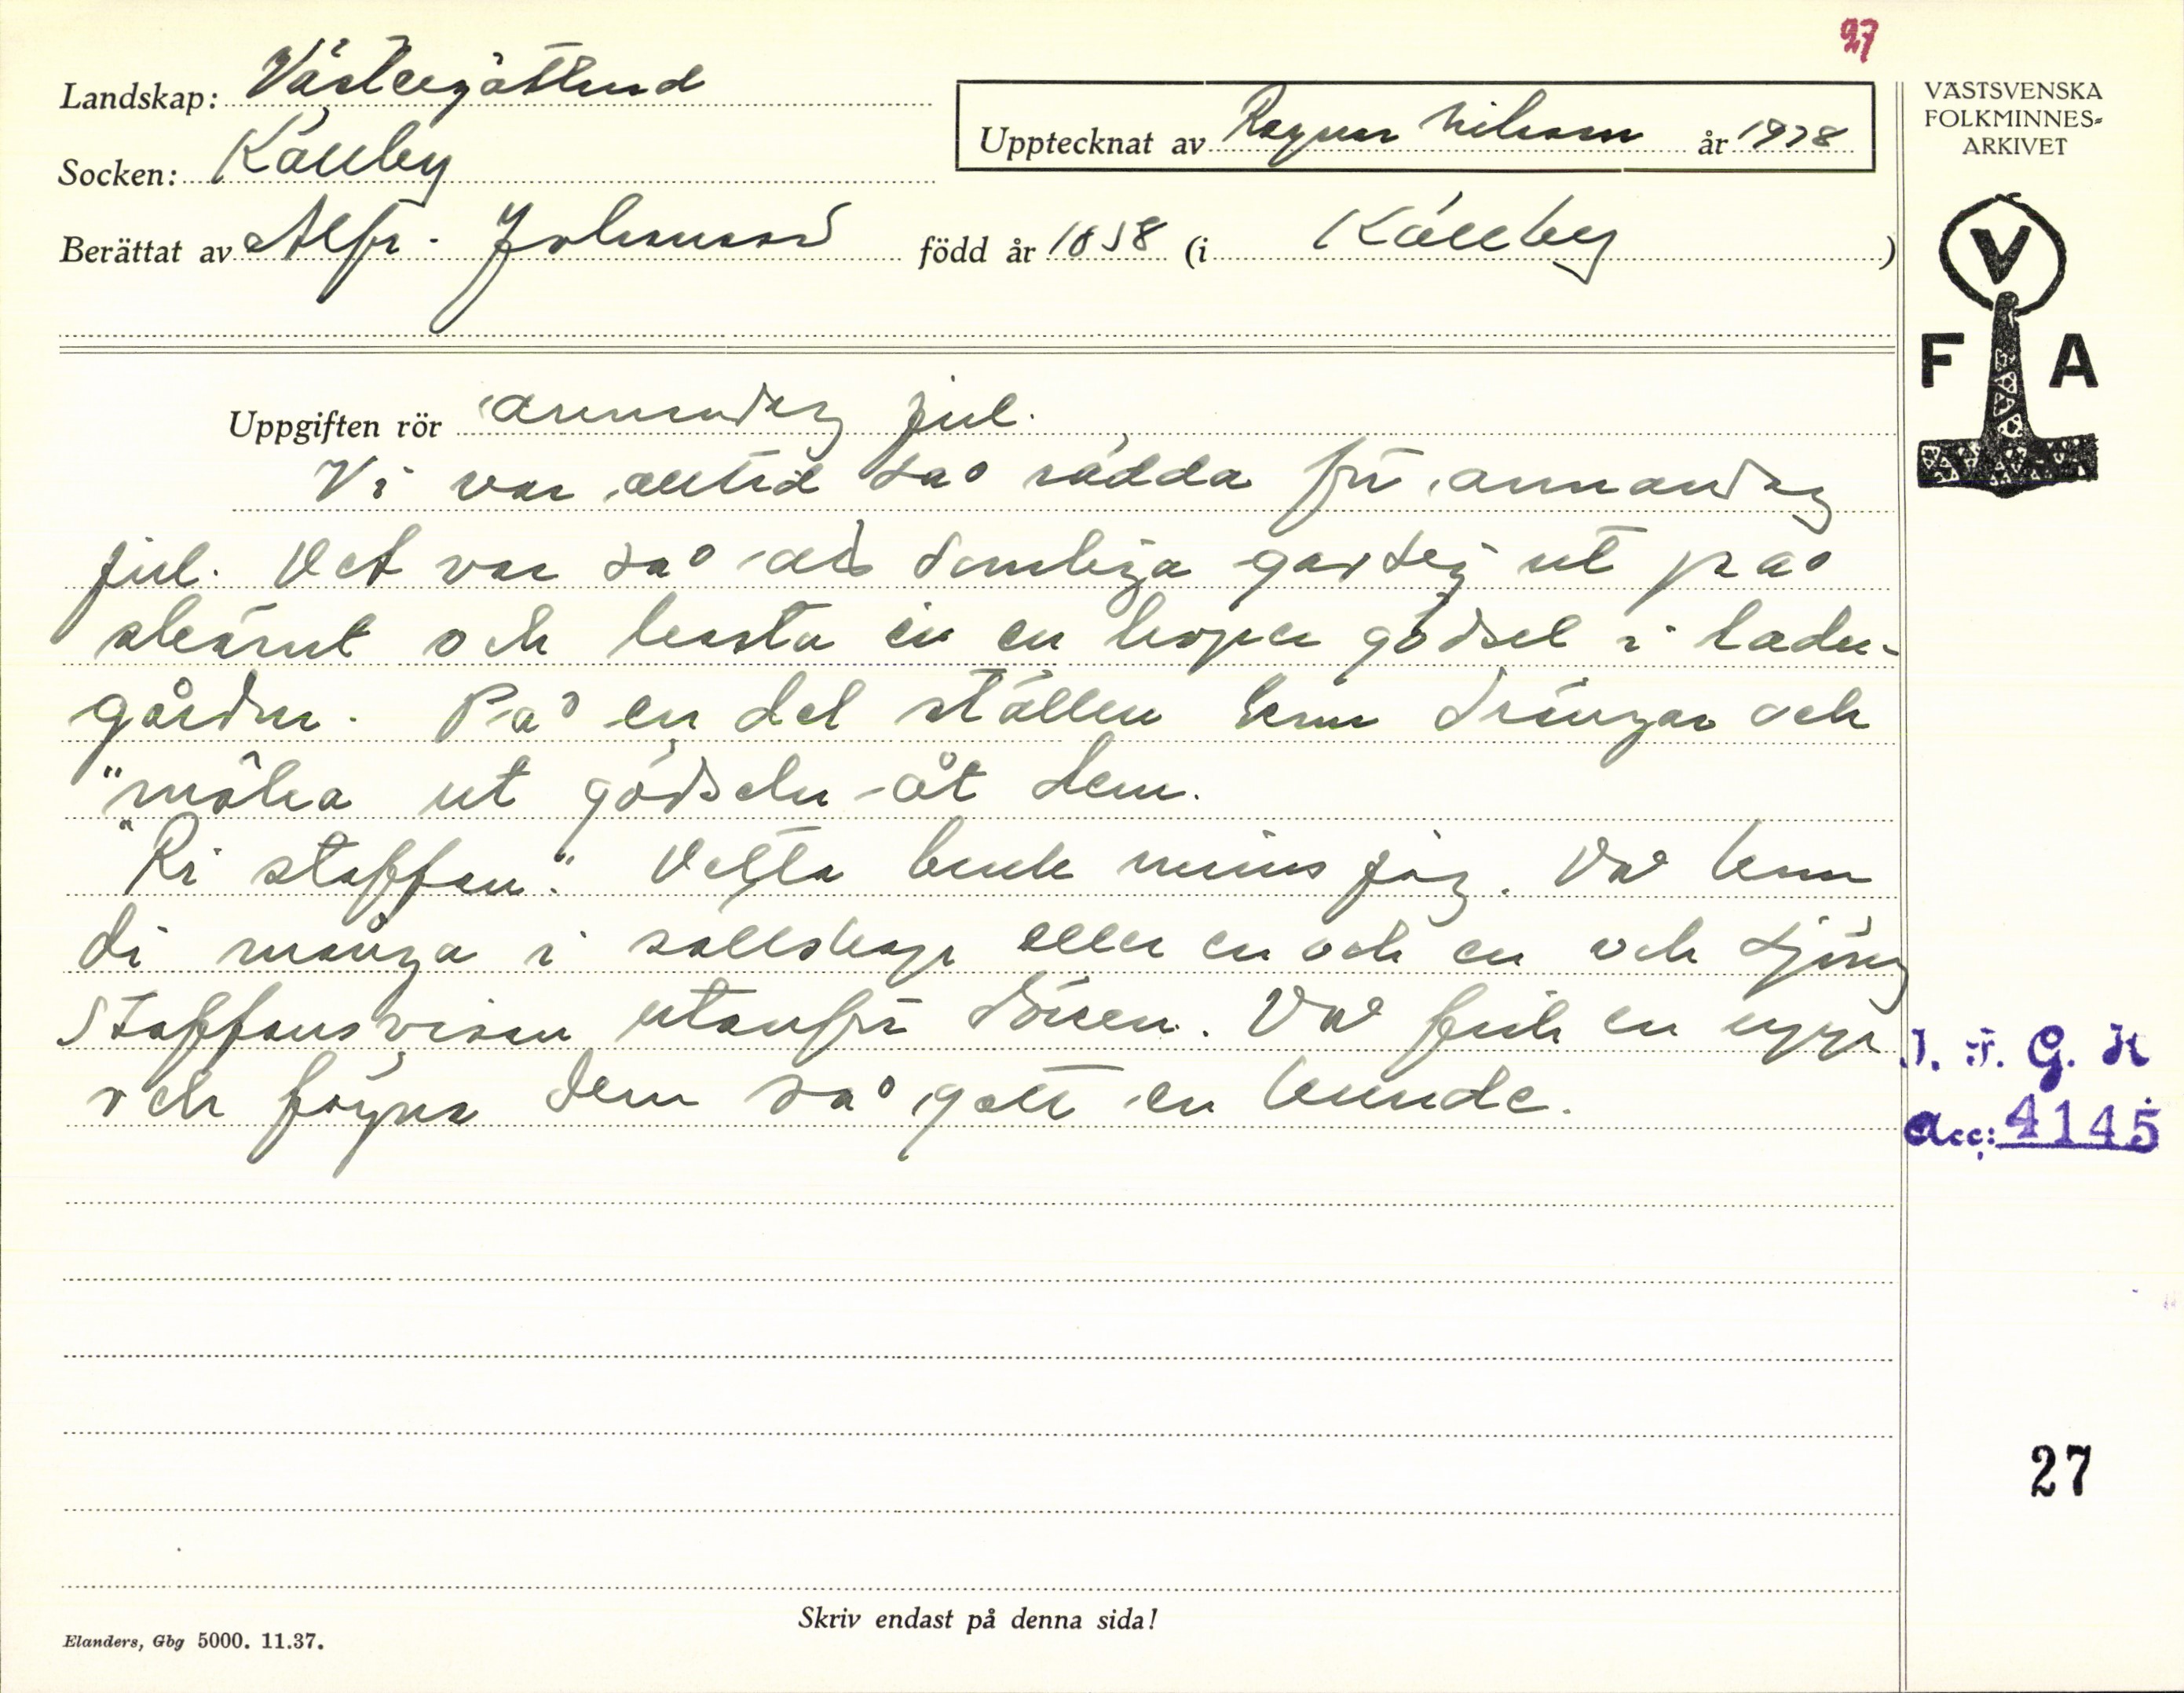 27
Landskap: Västergötland
Socken: Källby
Upptecknat av Ragnar Nilsson år 1938
Berättat av Alfr. Johansson född år 1858 (i Källby)
VÄSTSVENSKA
FOLKMINNES-
ARKIVET
V
F A
Uppgiften rör annandag jul.
Vi var alltid så rädda för annandag
jul. Det var så att somliga gav sej ut på
skämt och kasta in en hoper gödsel i ladu-
gården. På en del ställen kom drängar och
"môka ut gödseln åt dem.
"Ri staffan." Detta bruk minns jäg. Då kom
di många i sällskap eller en och en och sjöng
Staffansvisan utanför dören. Då feck en upp
och fägna dem så gott en kunde.
I. F. G. H
Acc: 4145
27
Skriv endast på denna sida!
Elanders, Gbg 5000. 11.37.